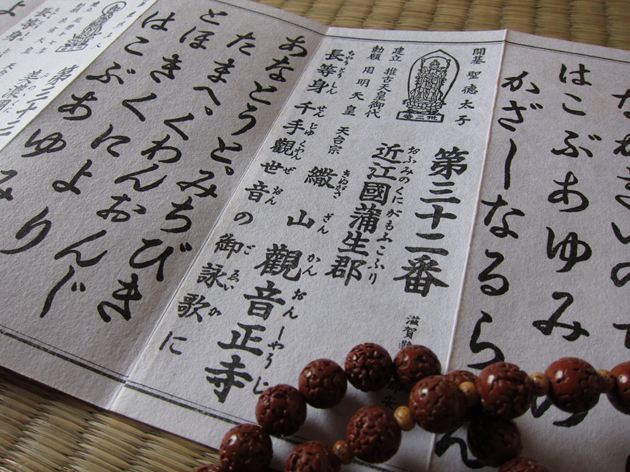 ながきいのち
はこぶあゆみの
かざしなるらん
開基 聖德太子
建立 推古天皇御代
勅願 用明天皇
卅二番
第三十二番
滋賀縣
おふみのくにがもふこふり
近江國蒲生郡
天台宗
きぬがさざんかんおんしやうじ
繖山觀音正寺
ながとうしんせんじゆくわんぜおんごゑいか
長等身千手觀世音の御詠歌に
あなとうと。みちびき
たまへ、くわんおんじ
とほきくにより
はこぶあゆみ
第三十三